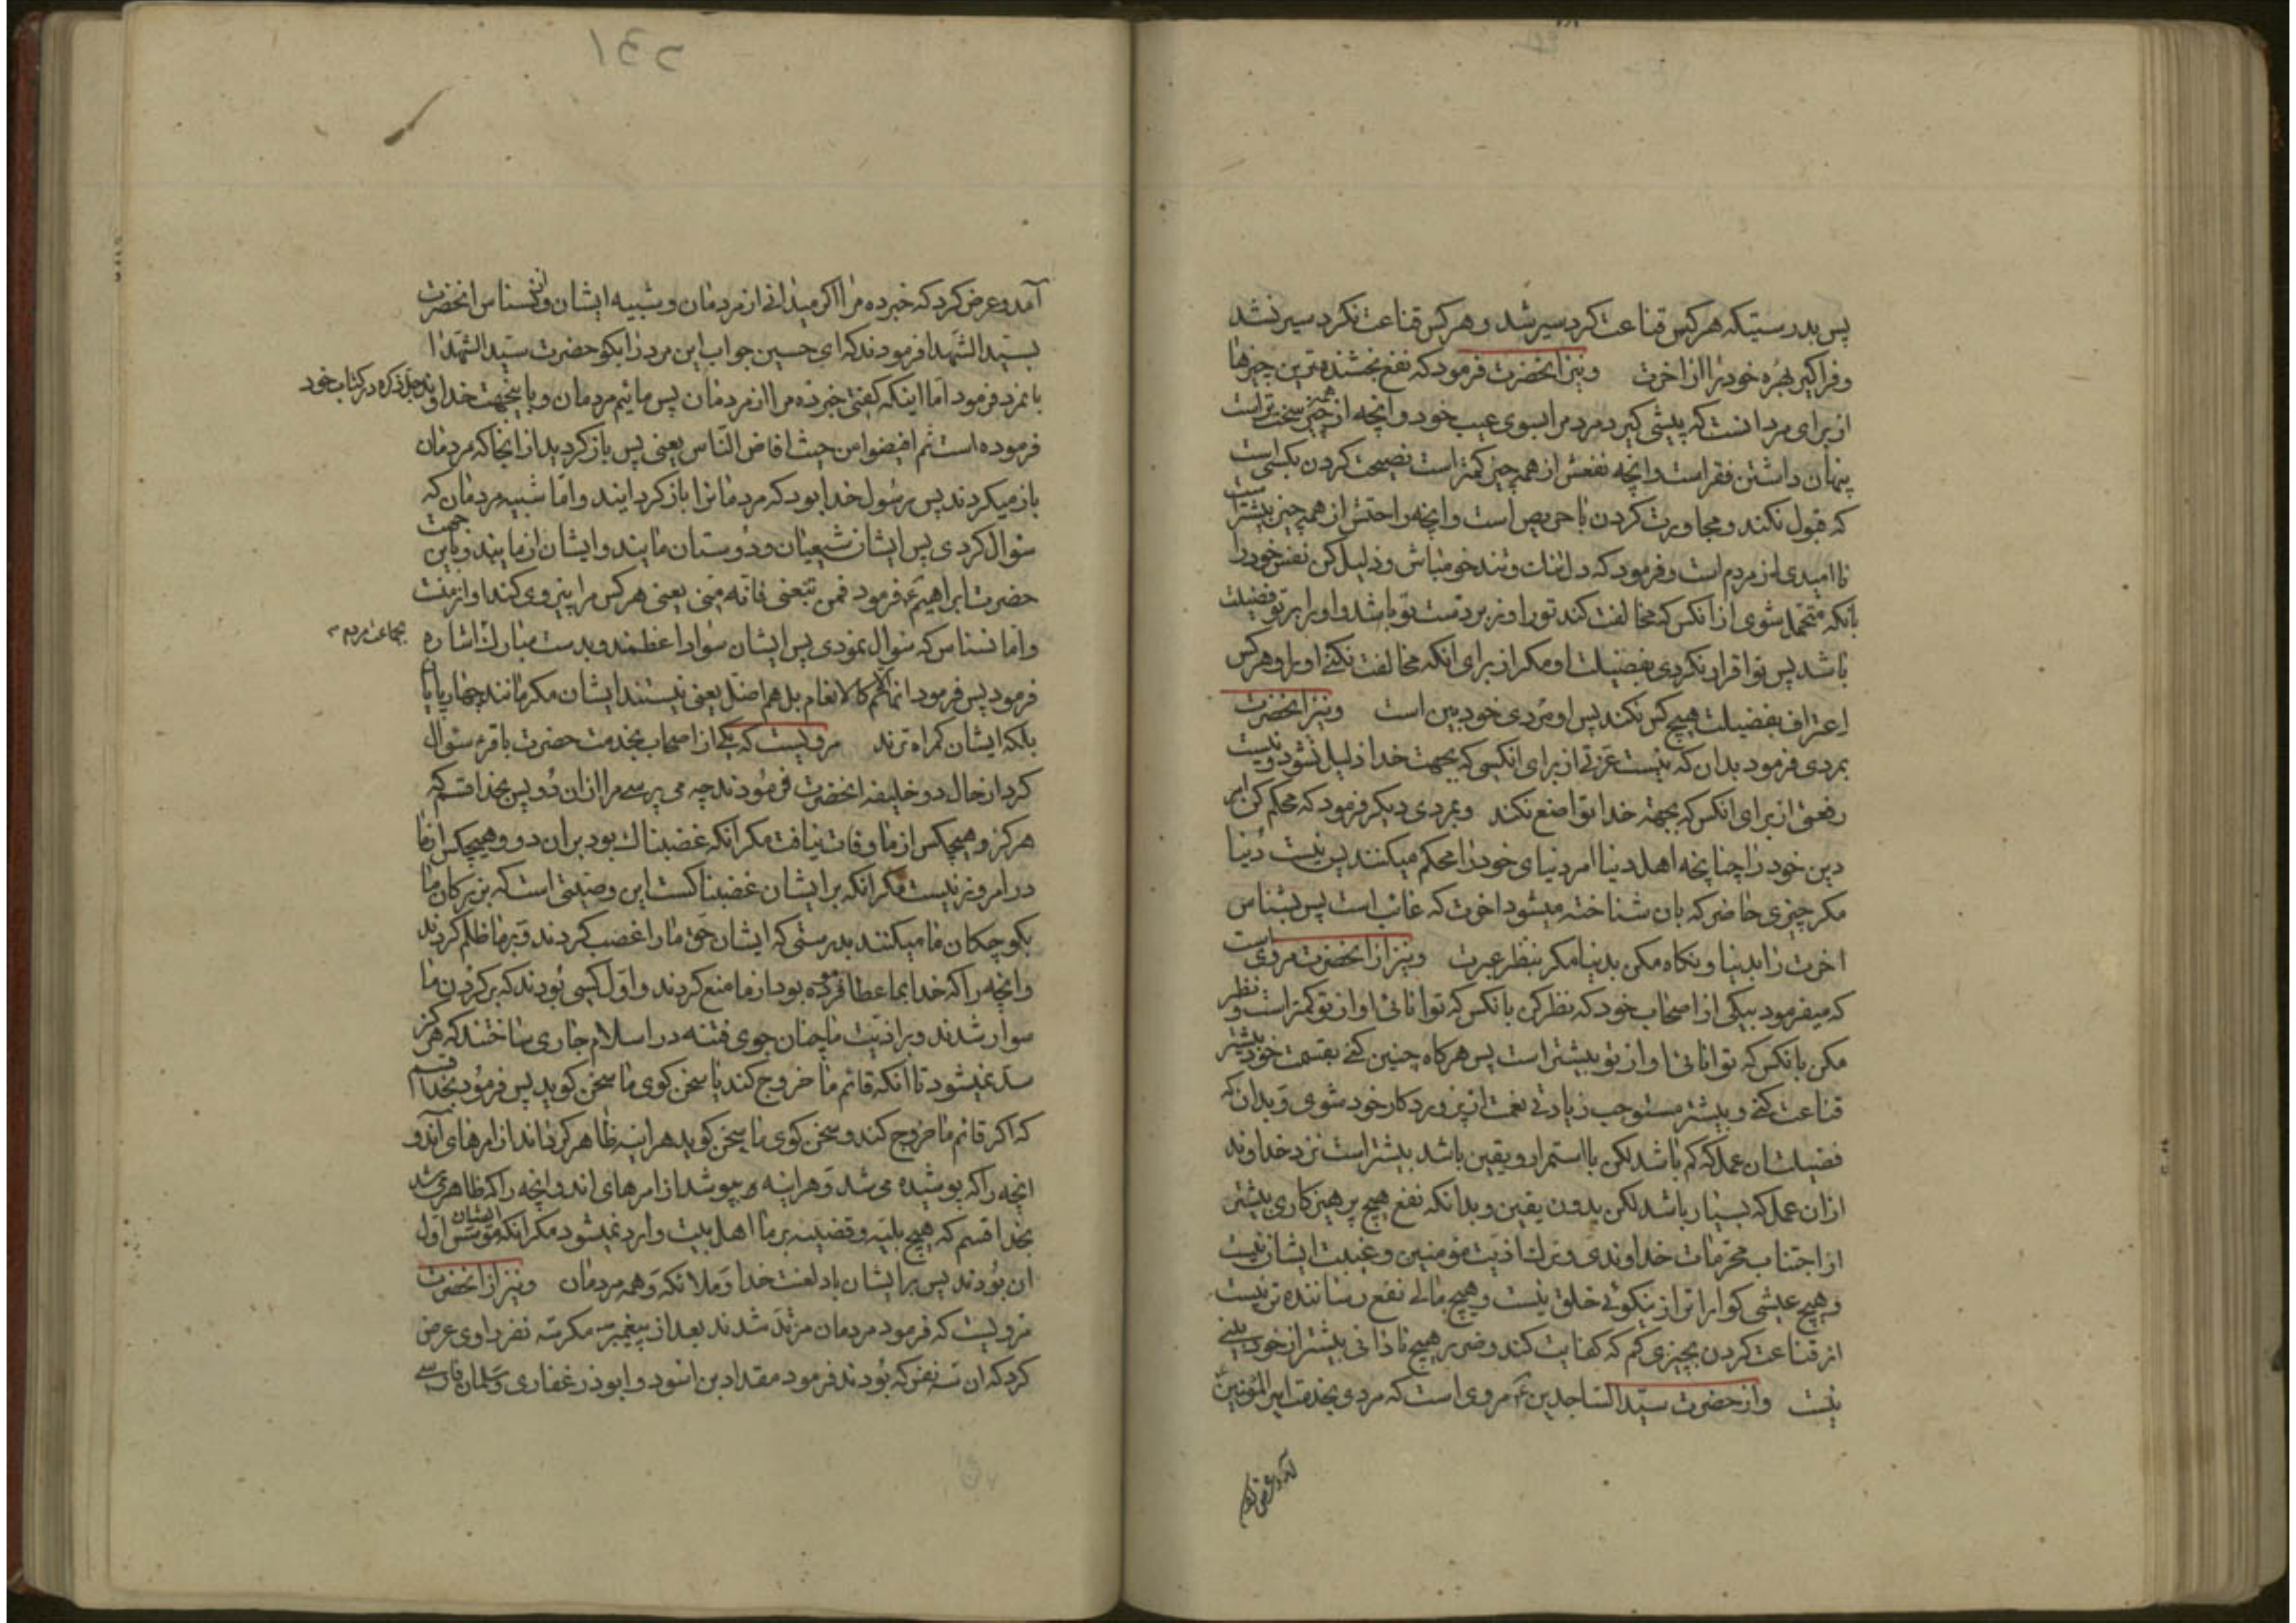 پس بدرستیکه هرکس قناعت کرد سیر شد و هرکس قناعت نکرد سیر نشد
و فراکیر بهره خود را از اخرت و نیز انحضرت فرمود که نفع بخشنده ترین چیزها
از برای مرد انست که پیشی کیرد مرد مر ابسوی عیب خود و انچه از همه چیز سخت تر است
پنهان داشتن فقر است و انچه نفعش از همه چیز کمتر است نصیحت کردن بکسی است
که قبول نکند و مجاورت کردن با حریص است و انچه راحتش از همه چیز بیشتر است
نا امیدی از مردم است و فرمود که دلتنک و تند خو مباش و ذلیل کن نفس خود را
بانکه متحمل شوی از انکس که مخالفت کند تو را و زبردست تو باشد و او را بر تو فضیلت
باشد پس تو اقرار نکردی بفضیلت او مکر از برای انکه مخالفت نکنی او را و هرکس
اعتراف بفضیلت هیچ کس نکند پس او مردی خود بین است و نیز انحضرت
بمردی فرمود بدان که نیست عزتی از برای انکسی که بجهت خدا ذلیل نشود و نیست
رفعتی از برای انکس که بجهة خدا تواضع نکند و بمردی دیکر فرمود که محکم کن امر
دین خود را چنانچه اهل دنیا امر دنیای خود را محکم میکنند پس نیست دنیا
مکر چیزی حاضر که بان شناخته میشود اخرت که غائب است پس بشناس
اخرت را بدنیا و نکاه مکن بدنیا مکر بنظر عبرت و نیز از انحضرت مروی است
که میفرمود بیکی از اصحاب خود که نظر کن بانکس که توانائی او از تو کمتر است و نظر
مکن بانکس که توانائی او از تو بیشتر است پس هرکاه چنین کنی بقسمت خود بیشتر
قناعت کنی و بیشتر مستوجب زیادتی نعمت از پروردکار خود شوی و بدان که
فضیلت ان عمل که کم باشد لکن با استمرار و یقین باشد بیشتر است نزد خداوند
از ان عمل که بسیار باشد لکن بدون یقین و بدانکه نفع هیچ پرهیزکاری بیشتر
از اجتناب محرمات خداوندی و ترک اذیت مؤمنین و غیبت ایشان نیست
و هیچ عیشی کواراتر از نیکوئی خلق نیست و هیچ مالی نفع رساننده تر نیست
از قناعت کردن بچیزی کم که کفایت کند و ضرر هیچ نادانی بیشتر از خود بینی
نیست و از حضرت سید الساجدین ع مروی است که مردی بخدمت امیر المؤمنین ع
آمد و عرض کرد که خبر ده مرا اکر میدانی از مردمان و شبیه ایشان و از نسناس انحضرت
بسید الشهدا فرمودند که ای حسین جواب این مرد را بکو حضرت سید الشهدا
بانمرد فرمود اما اینکه کفتی خبر ده مرا از مردمان پس مائیم مردمان و باینجهت خداوند جل ذکره در کتاب خود
فرموده است ثم افیضوا من حیث افاض الناس یعنی پس باز کردید از انجا که مردمان
باز میکردند پس رسول خدا بود که مردمانرا باز کرد ایند و اما شبیه مردمان که
سؤال کردی پس ایشان شیعیان و دوستان مایند و ایشان از مایند و باین جهت
حضرت ابراهیم ع فرمود فمن تبعنی فانه منی یعنی هرکس مرا پیروی کند او از منست
و اما نسناس که سؤال نمودی پس ایشان سواد اعظمند و بدست مبارک اشاره بجماعت مردم
فرمود پس فرمود انما هم کالانعام بل هم اضل یعنی نیستند ایشان مکر مانند چهارپایان
بلکه ایشان کمراه ترند مرویست که یکی از اصحاب بخدمت حضرت باقر ع سؤال
کرد از حال دو خلیفه انحضرت فرمودند چه می پرسی مرا از ان دو پس بخدا قسم که
هرکز و هیچکس از ما وفات نیافت مکر انکه غضبناک بود بر ان دو و هیچکس از ما
در امروز نیست مکر انکه بر ایشان غضبناکست این وصیتی است که بزرکان ما
بکوچکان ما میکنند بدرستی که ایشان حق ما را غصب کردند و بر ما ظلم کردند
و انچه را که خدا بما عطا کرده بود از ما منع کردند و اول کسی بودند که بر کردن ما
سوار شدند و بر اذیت ما چنان جوی فتنه در اسلام جاری ساختند که هرکز
سد نمیشود تا انکه قائم ما خروج کند یا سخن کوی ما سخن کوید پس فرمود بخدا قسم
که اکر قائم ما خروج کند و سخن کوی ما سخن کوید هراینه ظاهر کرداند از امرهای اندو
انچه را که پوشیده می شد و هراینه می پوشد از امرهای اندو انچه را که ظاهر می شد
بخدا قسم که هیچ بلیه و قضیه بر ما اهل بیت وارد نمیشود مکر انکه ایشان مؤسس اول
ان بودند پس بر ایشان باد لعنت خدا و ملائکه و همه مردمان و نیز از انحضرت
مرویست که فرمود مردمان مرتد شدند بعد از پیغمبر مکر سه نفر راوی عرض
کرد که ان سه نفر که بودند فرمود مقداد بن اسود و ابوذر غفاری و سلمان فارسی